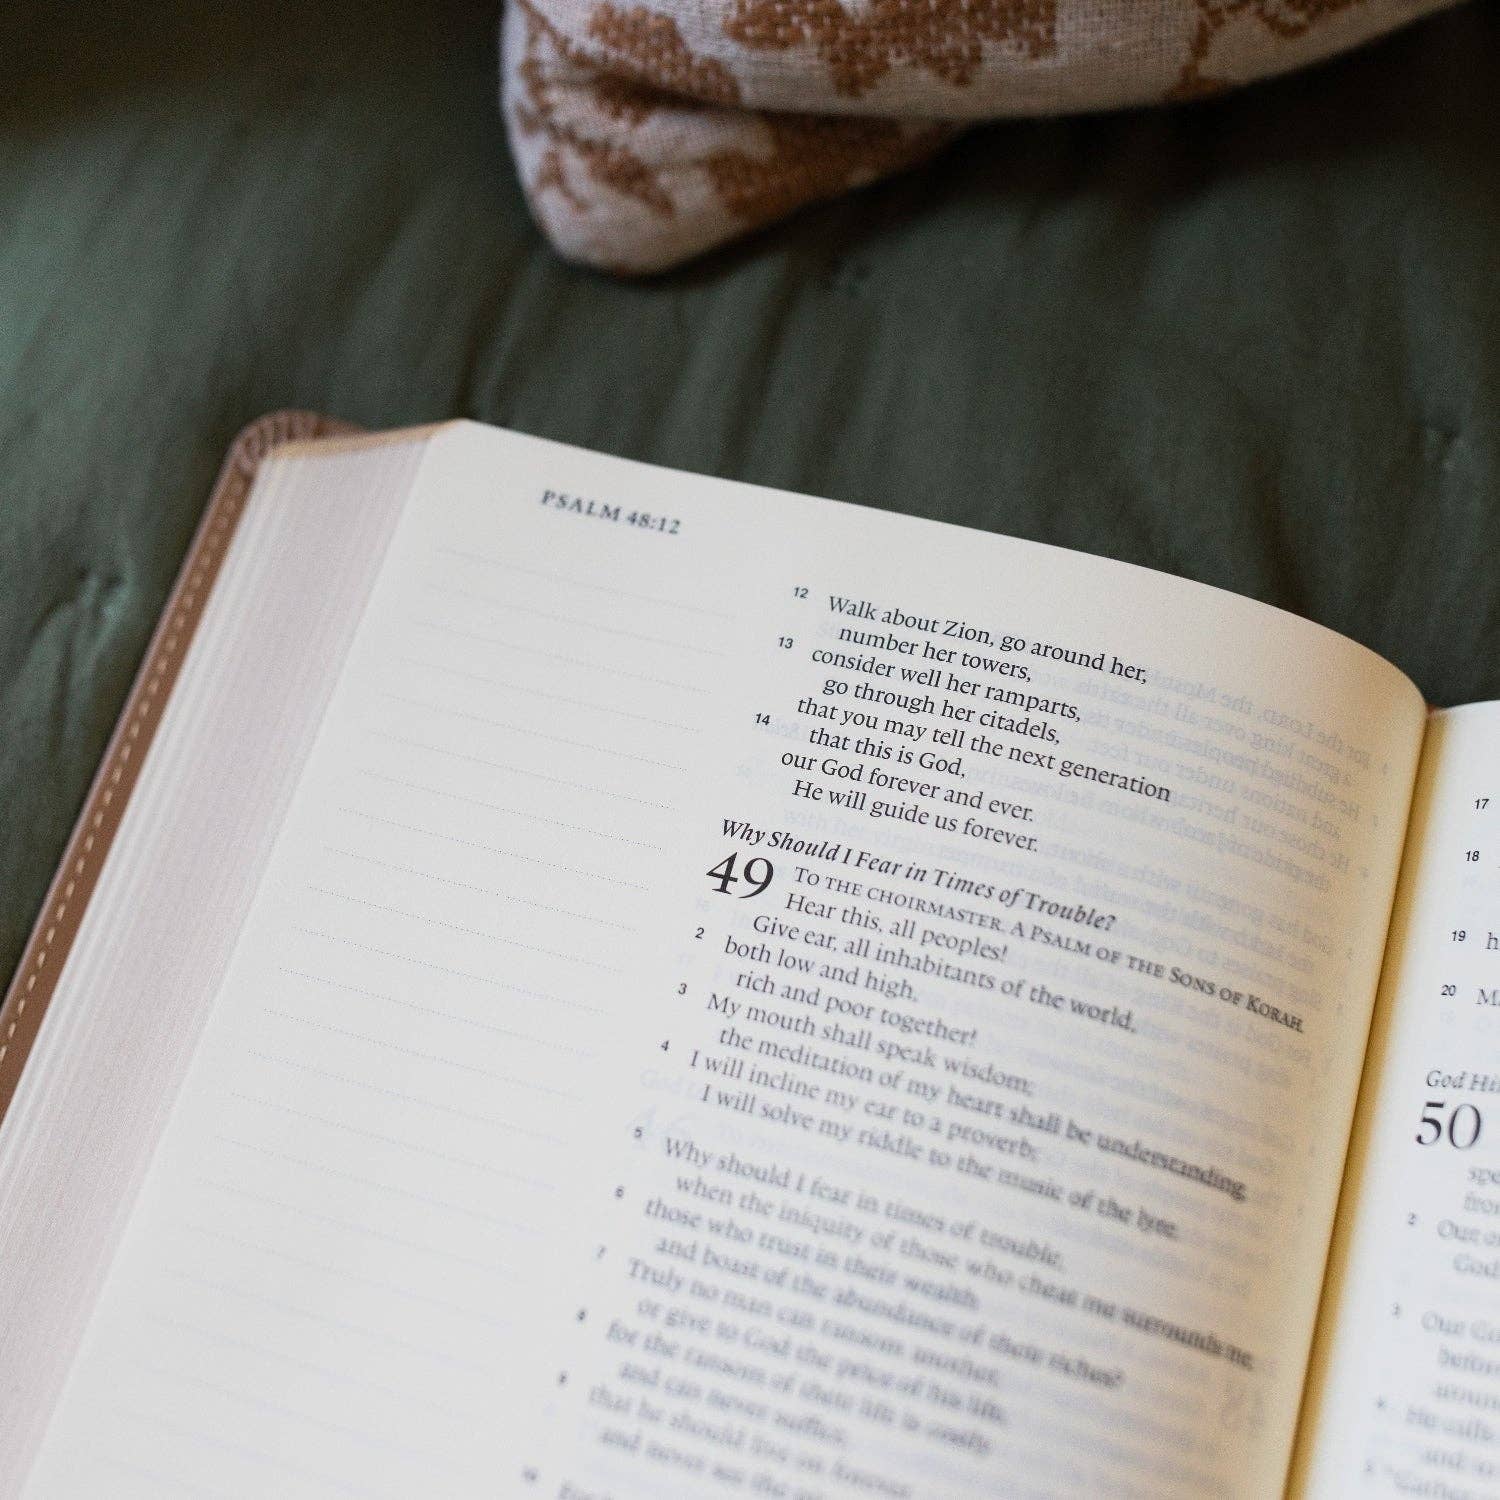 PSALM 48:12
12 Walk about Zion, go around her,
number her towers,
13 consider well her ramparts,
go through her citadels,
14 that you may tell the next generation
that this is God,
our God forever and ever.
He will guide us forever.
Why Should I Fear in Times of Trouble?
49 TO THE CHOIRMASTER. A PSALM OF THE SONS OF KORAH.
Hear this, all peoples!
Give ear, all inhabitants of the world,
2 both low and high,
rich and poor together!
3 My mouth shall speak wisdom;
the meditation of my heart shall be understanding.
4 I will incline my ear to a proverb;
I will solve my riddle to the music of the lyre.
5 Why should I fear in times of trouble,
when the iniquity of those who cheat me surrounds me,
6 those who trust in their wealth
and boast of the abundance of their riches?
7 Truly no man can ransom another,
or give to God the price of his life,
8 for the ransom of their life is costly
and can never suffice,
9 that he should live on forever
and never see the
10
17
18
19
20
God Hi
50
2 Our
God
3 Our